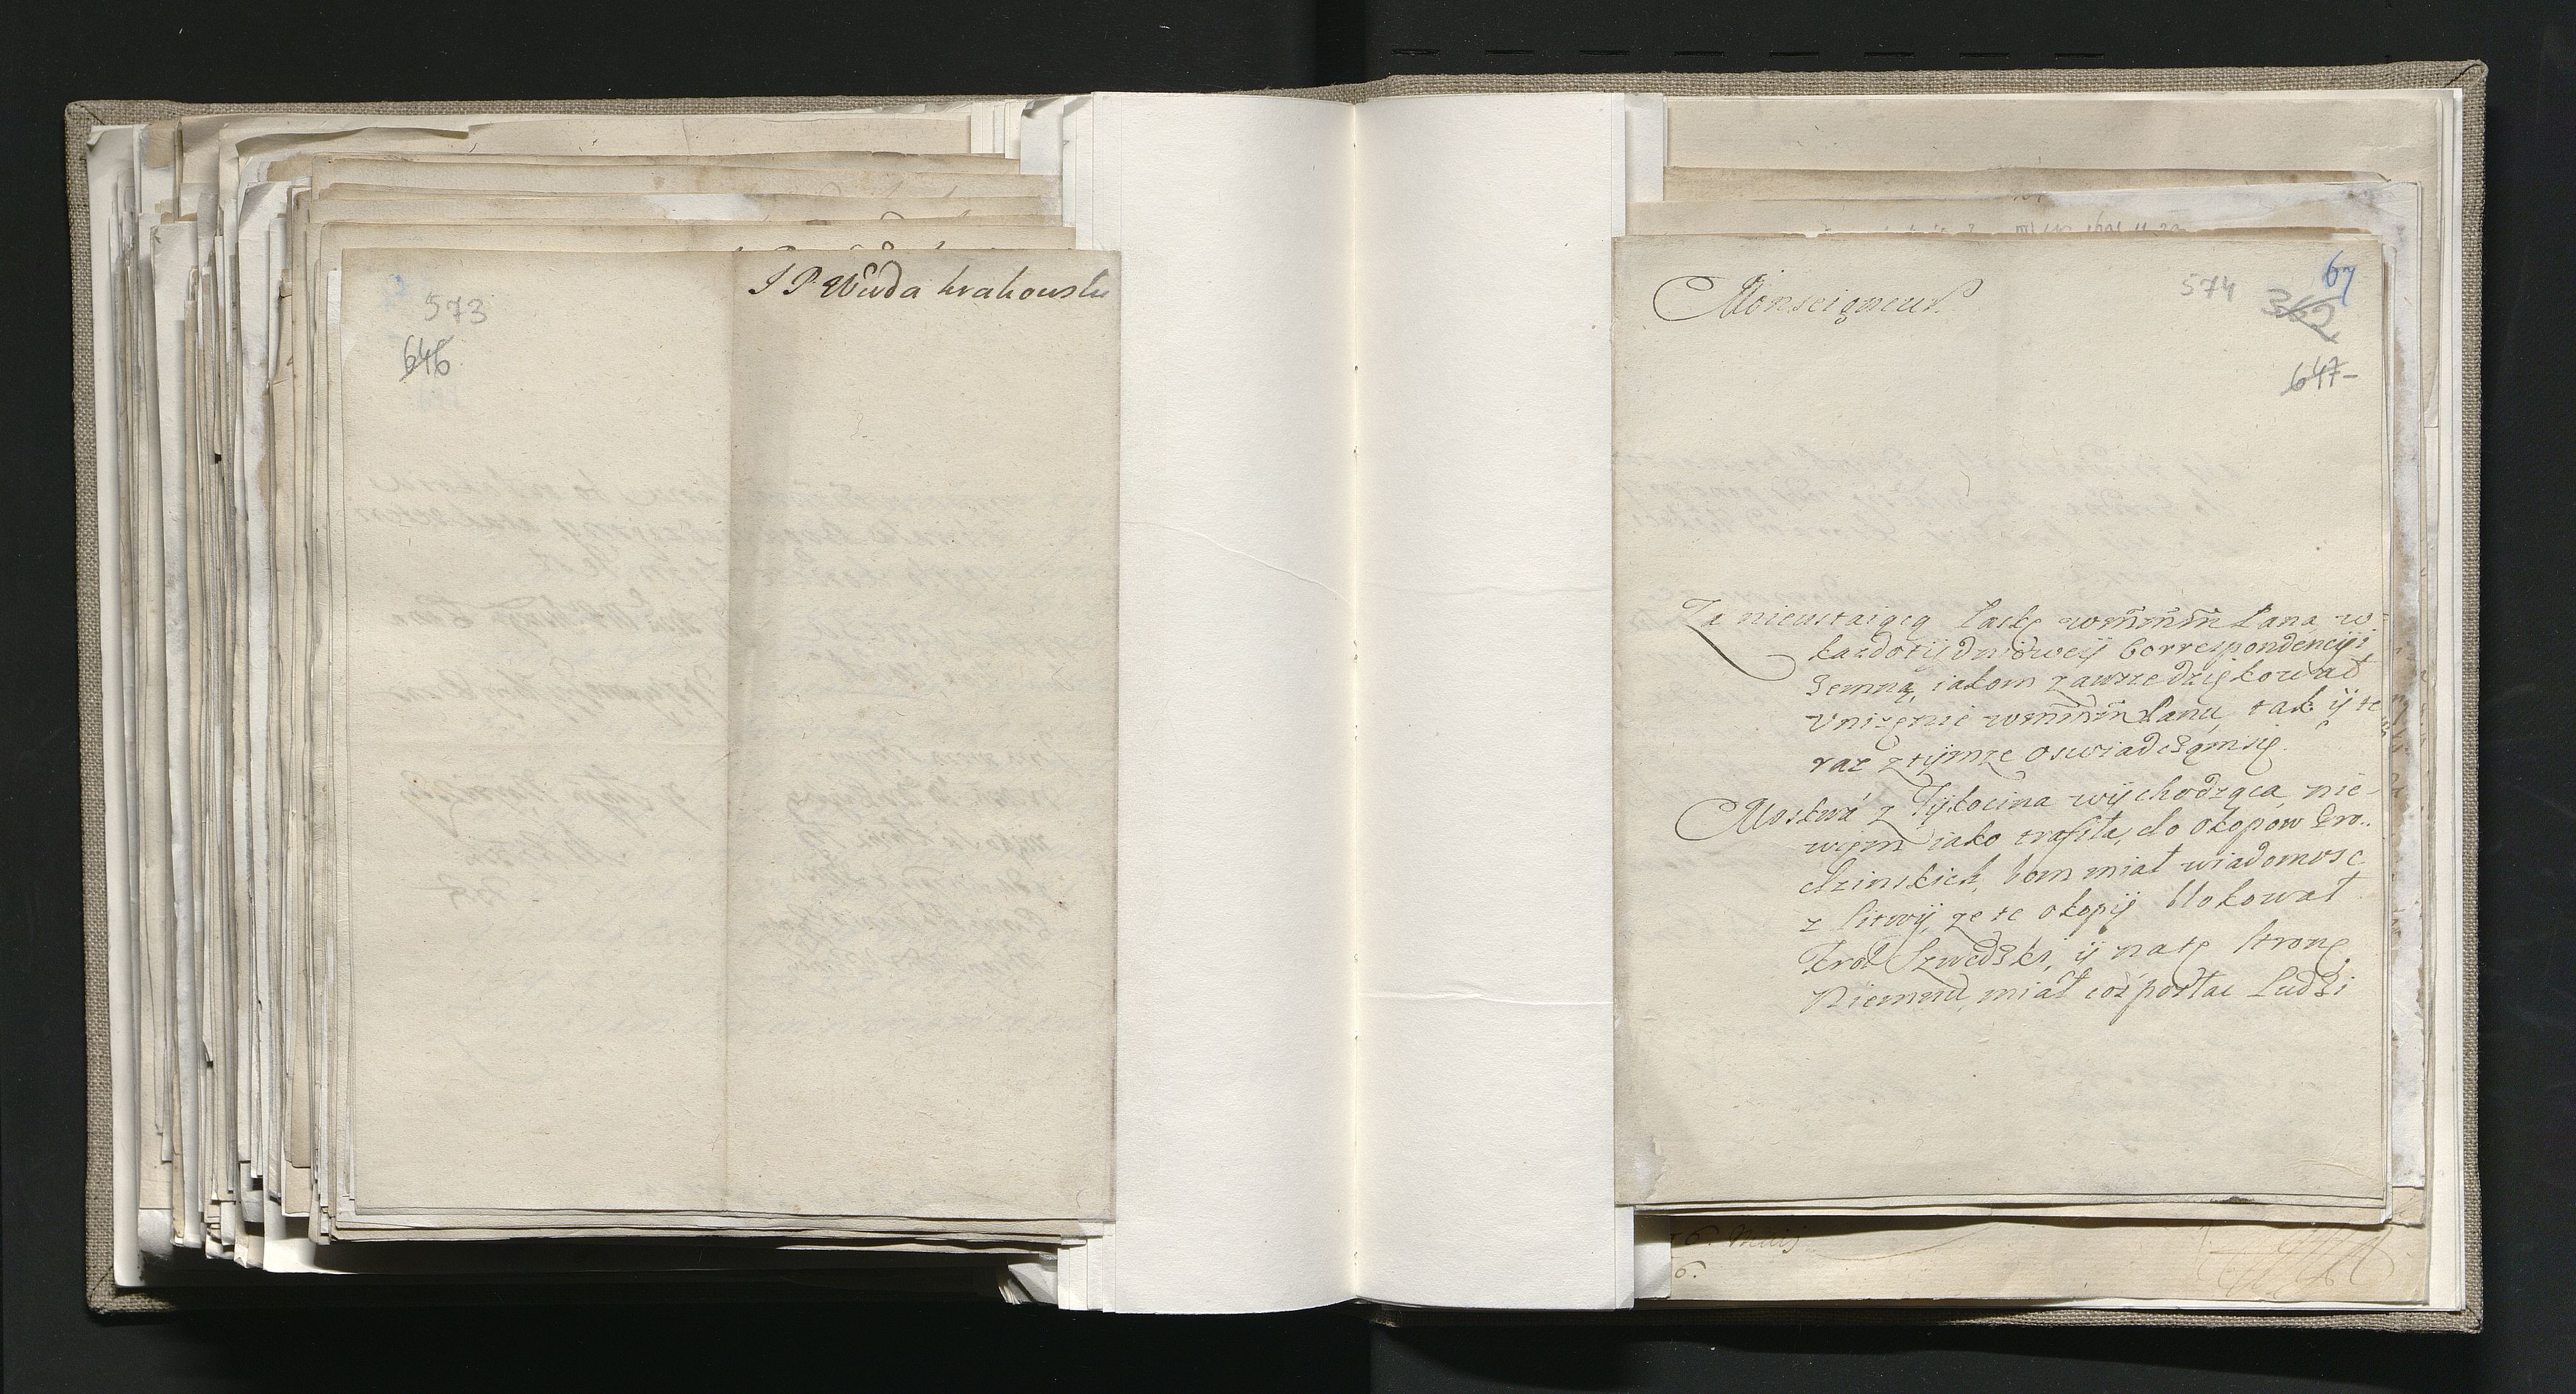 573
646
J P Wwda krakowski
Monseigneur
574
67
362
647-
Za nieustaiącą łaskę wmmm Pana w
kazdotÿdnioweÿ Correspondencÿi
zemną, iakom zawsze dziękował
Unizenie wmmm Panu, tak ÿ te
raz z tÿmze oswiadczamsię.
Moskwa z Tÿkocina wÿchodząca nie
wiem iako trafiła, do okopow Gro..
dzinskich, bom miał wiadomosc
z Litwÿ, ze te okopÿ blokował
Krol Szwedzki, ÿ natę stronę
Niemna, miał cos postac ludzi
6. Maij
6.